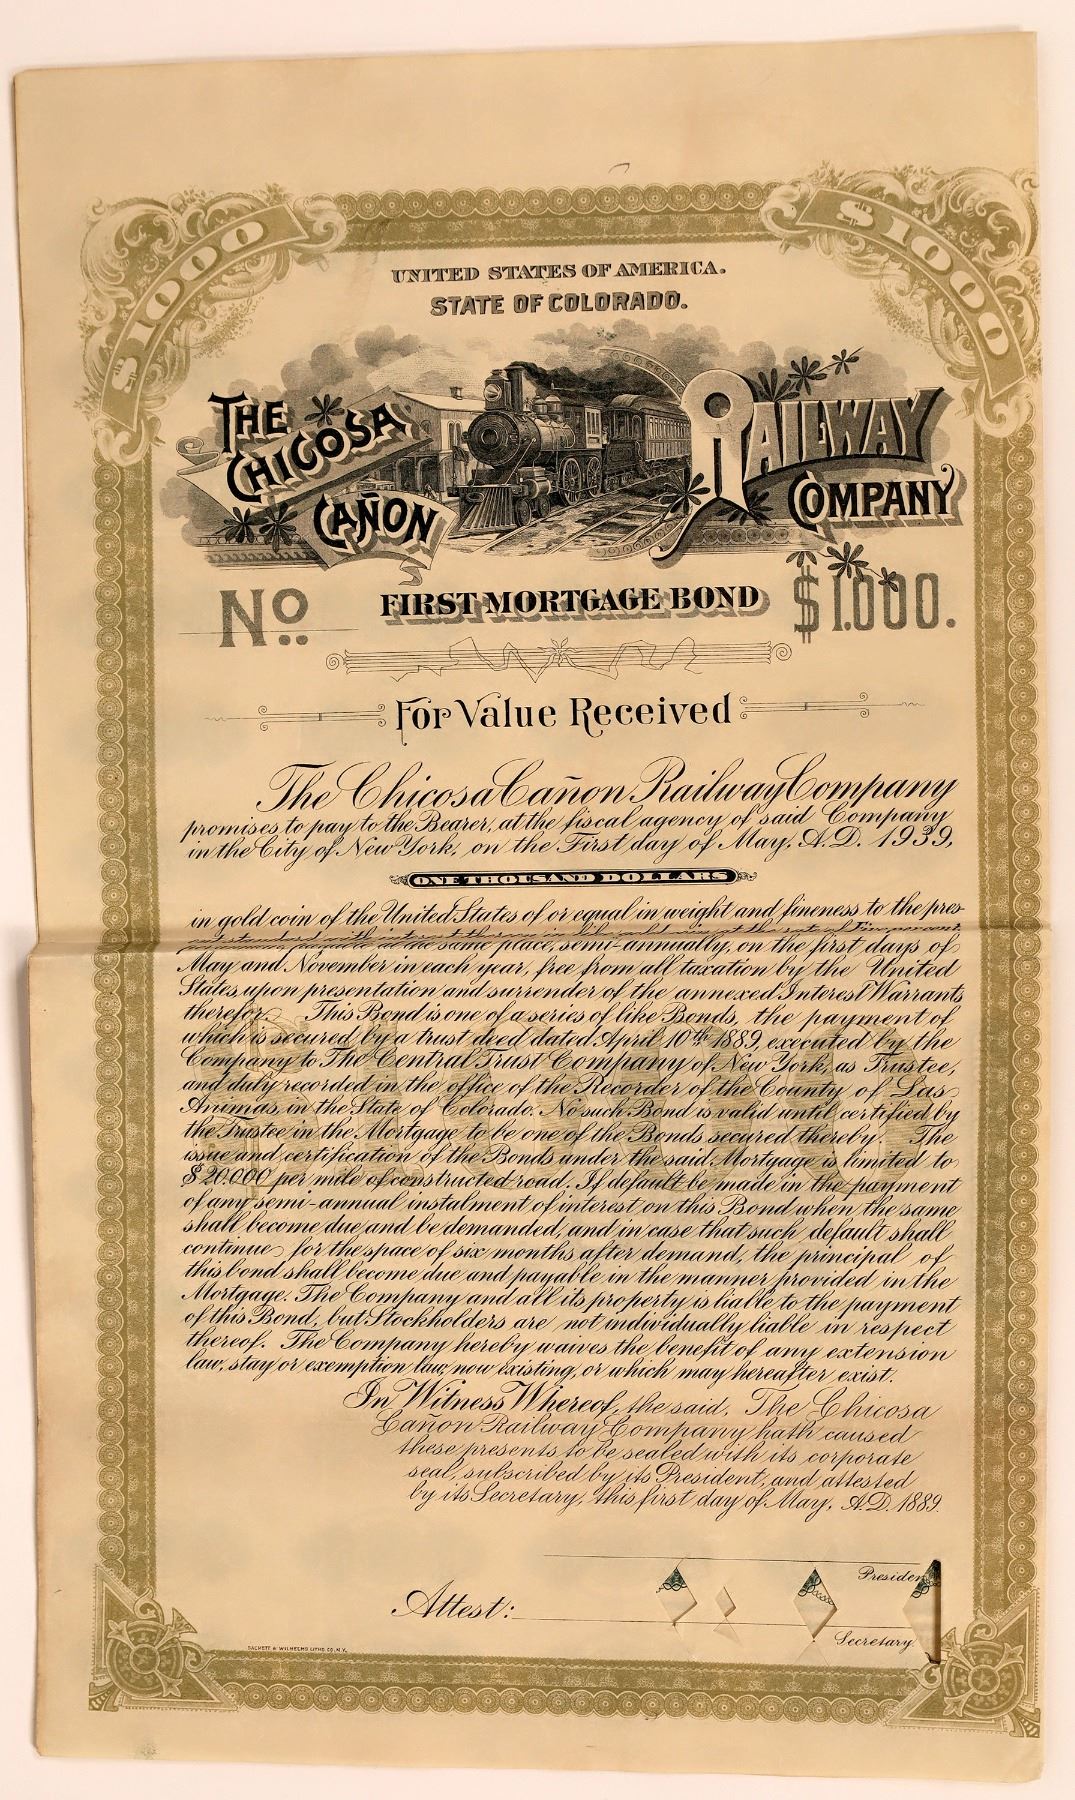 $1000
$1000
UNITED STATES OF AMERICA.
STATE OF COLORADO.
THE CHICOSA CAÑON RAILWAY COMPANY
No. FIRST MORTGAGE BOND $1.000.
For Value Received
The Chicosa Cañon Railway Company
promises to pay to the Bearer, at the fiscal agency of said Company
in the City of New York, on the First day of May, A.D. 1939,
ONE THOUSAND DOLLARS
in gold coin of the United States of or equal in weight and fineness to the pres-
ent standard with interest thereon in like gold coin at the rate of Five per cent.
payable at the same place, semi-annually, on the first days of
May and November in each year, free from all taxation by the United
States, upon presentation and surrender of the annexed Interest Warrants
therefor. This Bond is one of a series of like Bonds, the payment of
which is secured by a trust deed dated April 10th 1889, executed by the
Company to The Central Trust Company of New York, as Trustee,
and duly recorded in the office of the Recorder of the County of Las
Animas, in the State of Colorado. No such Bond is valid until certified by
the Trustee in the Mortgage to be one of the Bonds secured thereby. The
issue and certification of the Bonds under the said Mortgage is limited to
$20.000 per mile of constructed road. If default be made in the payment
of any semi-annual instalment of interest on this Bond when the same
shall become due and be demanded, and in case that such default shall
continue for the space of six months after demand, the principal of
this bond shall become due and payable in the manner provided in the
Mortgage. The Company and all its property is liable to the payment
of this Bond, but Stockholders are not individually liable in respect
thereof. The Company hereby waives the benefit of any extension
law, stay or exemption law, now existing, or which may hereafter exist.
In Witness Whereof, the said, The Chicosa
Cañon Railway Company hath caused
these presents to be sealed with its corporate
seal, subscribed by its President, and attested
by its Secretary, this first day of May, A.D. 1889.
President
Attest:
Secretary.
SACKETT & WILHELMS LITHO. CO. N.Y.